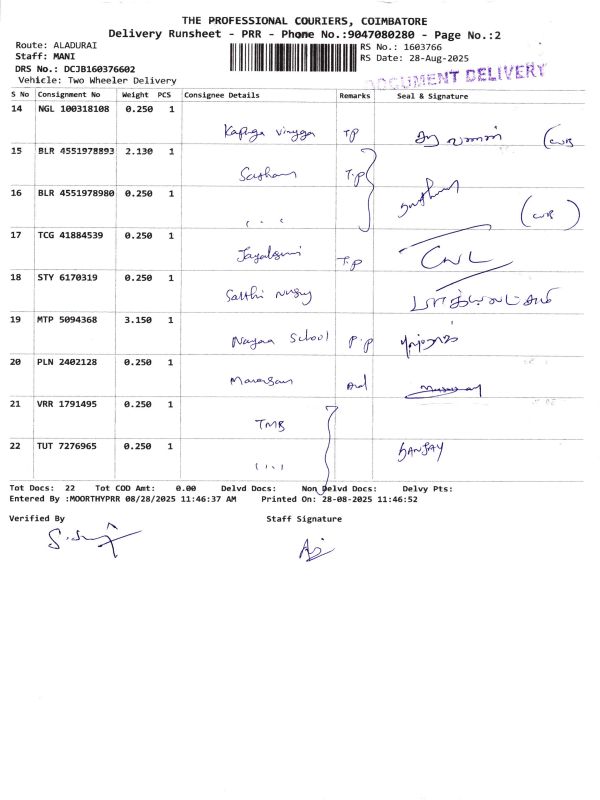 THE PROFESSIONAL COURIERS, COIMBATORE
Delivery Runsheet - PRR - Phone No.:9047080280 - Page No.:2
Route: ALADURAI
Staff: MANI
DRS No.: DCJB160376602
Vehicle: Two Wheeler Delivery
RS No.: 1603766
RS Date: 28-Aug-2025
DOCUMENT DELIVERY
S No Consignment No Weight PCS Consignee Details Remarks Seal & Signature
14 NGL 100318108 0.250 1
T.P
15 BLR 4551978893 2.130 1
T.P
16 BLR 4551978980 0.250 1
17 TCG 41884539 0.250 1
T.P
18 STY 6170319 0.250 1
Sakthi
19 MTP 5094368 3.150 1
School P.P
20 PLN 2402128 0.250 1
21 VRR 1791495 0.250 1
TMB
22 TUT 7276965 0.250 1
SANJAY
Tot Docs: 22 Tot COD Amt: 0.00 Delvd Docs: Non Delvd Docs: Delvy Pts:
Entered By :MOORTHYPRR 08/28/2025 11:46:37 AM Printed On: 28-08-2025 11:46:52
Verified By Staff Signature